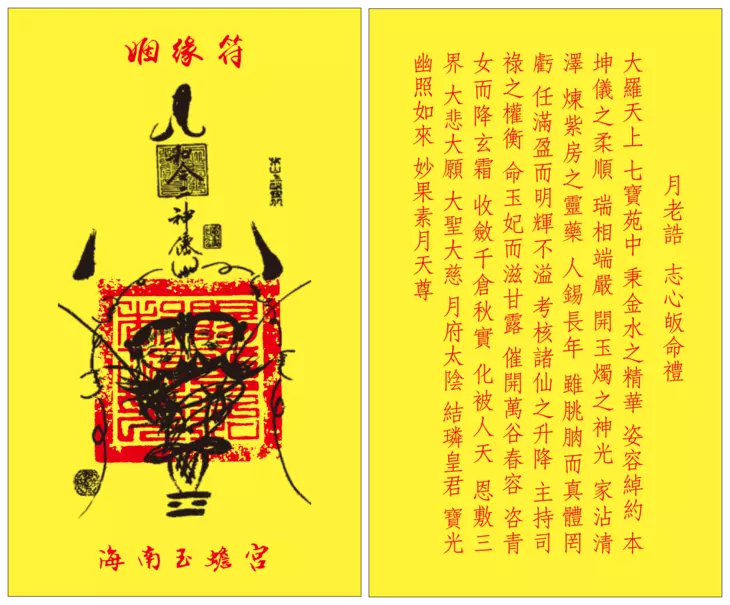 姻缘符
和合二神僊
海南玉蟾宫
月老誥 志心皈命禮
大羅天上 七寶苑中 秉金水之精華 姿容綽約 本
坤儀之柔順 瑞相端嚴 開玉燭之神光 家沾清
澤 煉紫房之靈藥 人錫長年 雖朓朒而真體罔
虧 任滿盈而明輝不溢 考核諸仙之升降 主持司
祿之權衡 命玉妃而滋甘露 催開萬谷春容 咨青
女而降玄霜 收斂千倉秋實 化被人天 恩敷三
界 大悲大願 大聖大慈 月府太陰 結璘皇君 寶光
幽照如來 妙果素月天尊